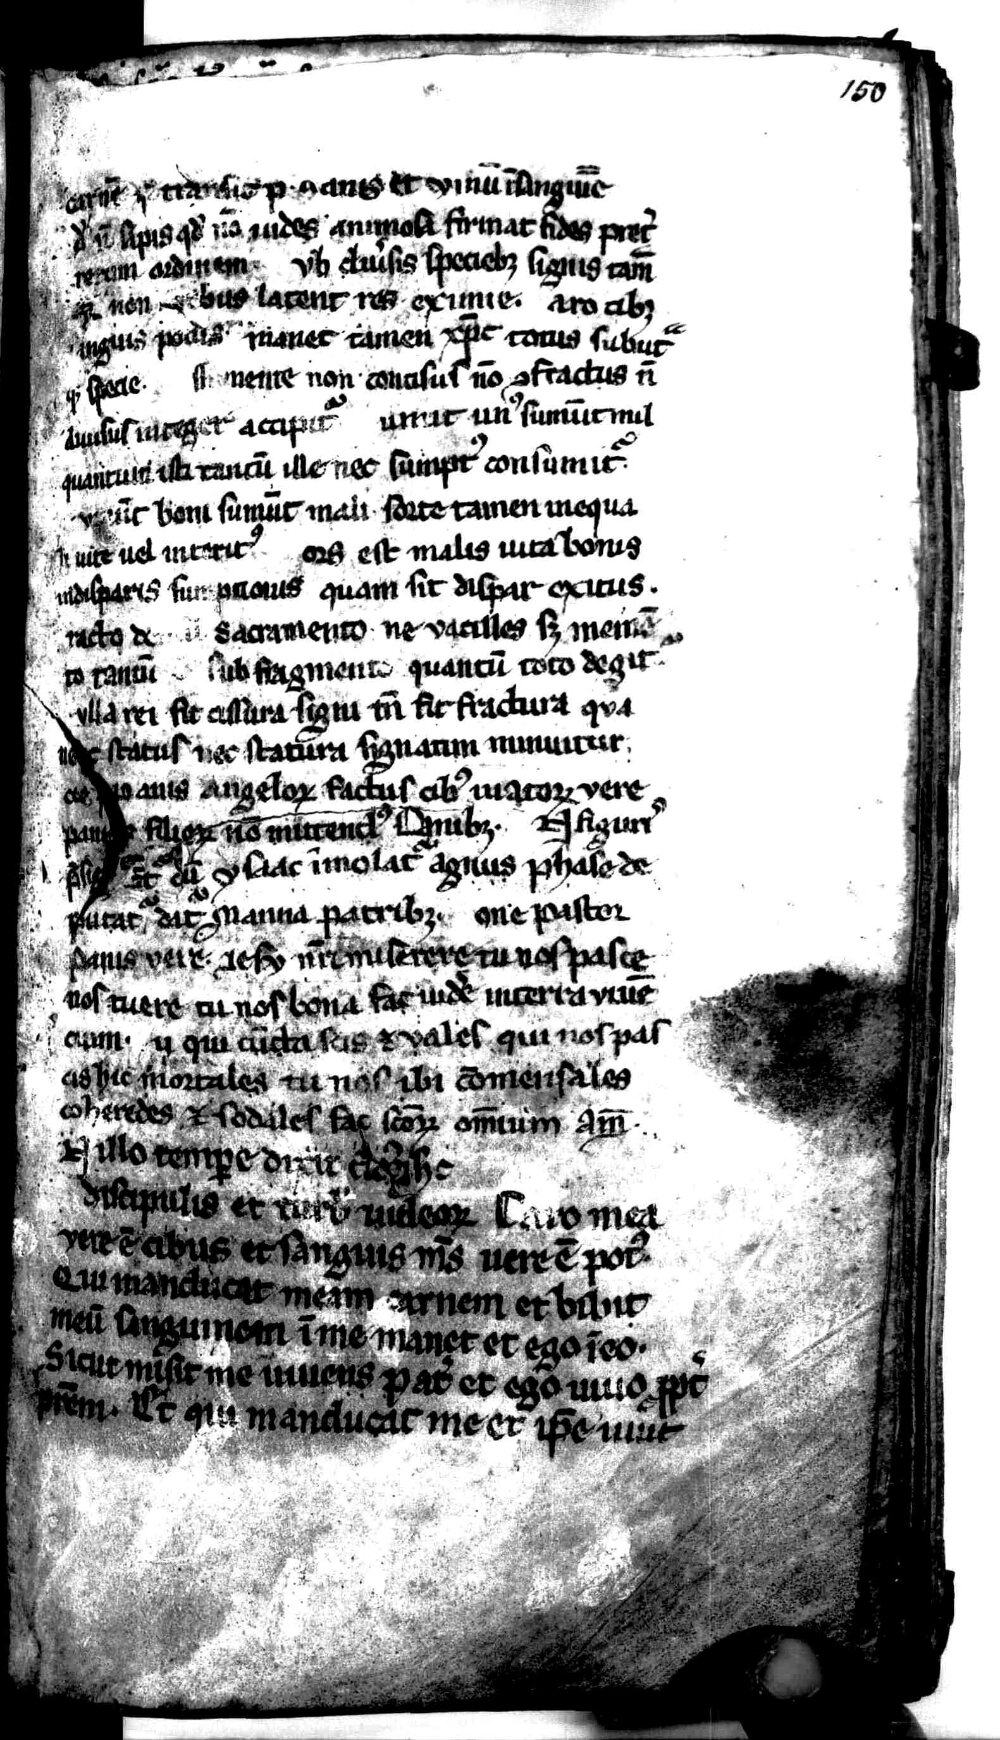 150
carnē transit panis et vinū ī sanguinē
qd̓ nō uides animosa firmat fides pret̓
rerum ordinem. vb diu̓sis speciebꝫ signis tam̄
non rebus latent res eximie. aro cibꝫ
anguis potus manet tamen xp̄c totus sub ut̓
specie. mente non concisus nō ꝯfractus n̄
diuisus integer accipit᷑ umit un᷒ sumūt mil
quantum isti tantū ille nec sumpt᷒ consumit᷑.
umūt boni sumūt mali sorte tamen inequa
li uite uel interit᷒ ors est malis uita bonis
uidisparis sumptionis quam sit dispar exitus.
racto de sacramento ne vacilles sꝫ memē
to tantū sub fragmento quantū toto tegit᷑
ulla rei fit cissura signi tn̄ fit fractura qua
nec status nec statura signatim minuitur.
cce panis angeloꝝ factus cib᷒ uiatoꝝ vere
panis filioꝝ nō mittend᷒ canibꝫ. N figuris
cū ysaac īmolat᷑ agnus phase de
putat᷑ dat᷑ manna patribꝫ. one pastor
panis vere iesu nr̄i miserere tu nos pasce
nos tuere tu nos bona fac uide in terra viuē
cium. u qui cūcta scis ⁊ vales qui nos pas
cis hic mortales tu nos ibi cōmensales
coheredes ⁊ sodales fac scōꝝ omīum am̄.
N illo tempe dixit ihc
discipulis et turb̓ iudeoꝝ Caro mea
vere ē cibus et sanguis ms̄ uere ē pot᷒.
Qui manducat meam carnem et bibit
meū sanguinem ī me manet et ego ī eo.
Sicut misit me uiuens pat̓ et ego uiuo ꝓpt̓
pr̄em. Et qui manducat me et ip̄e uiuit